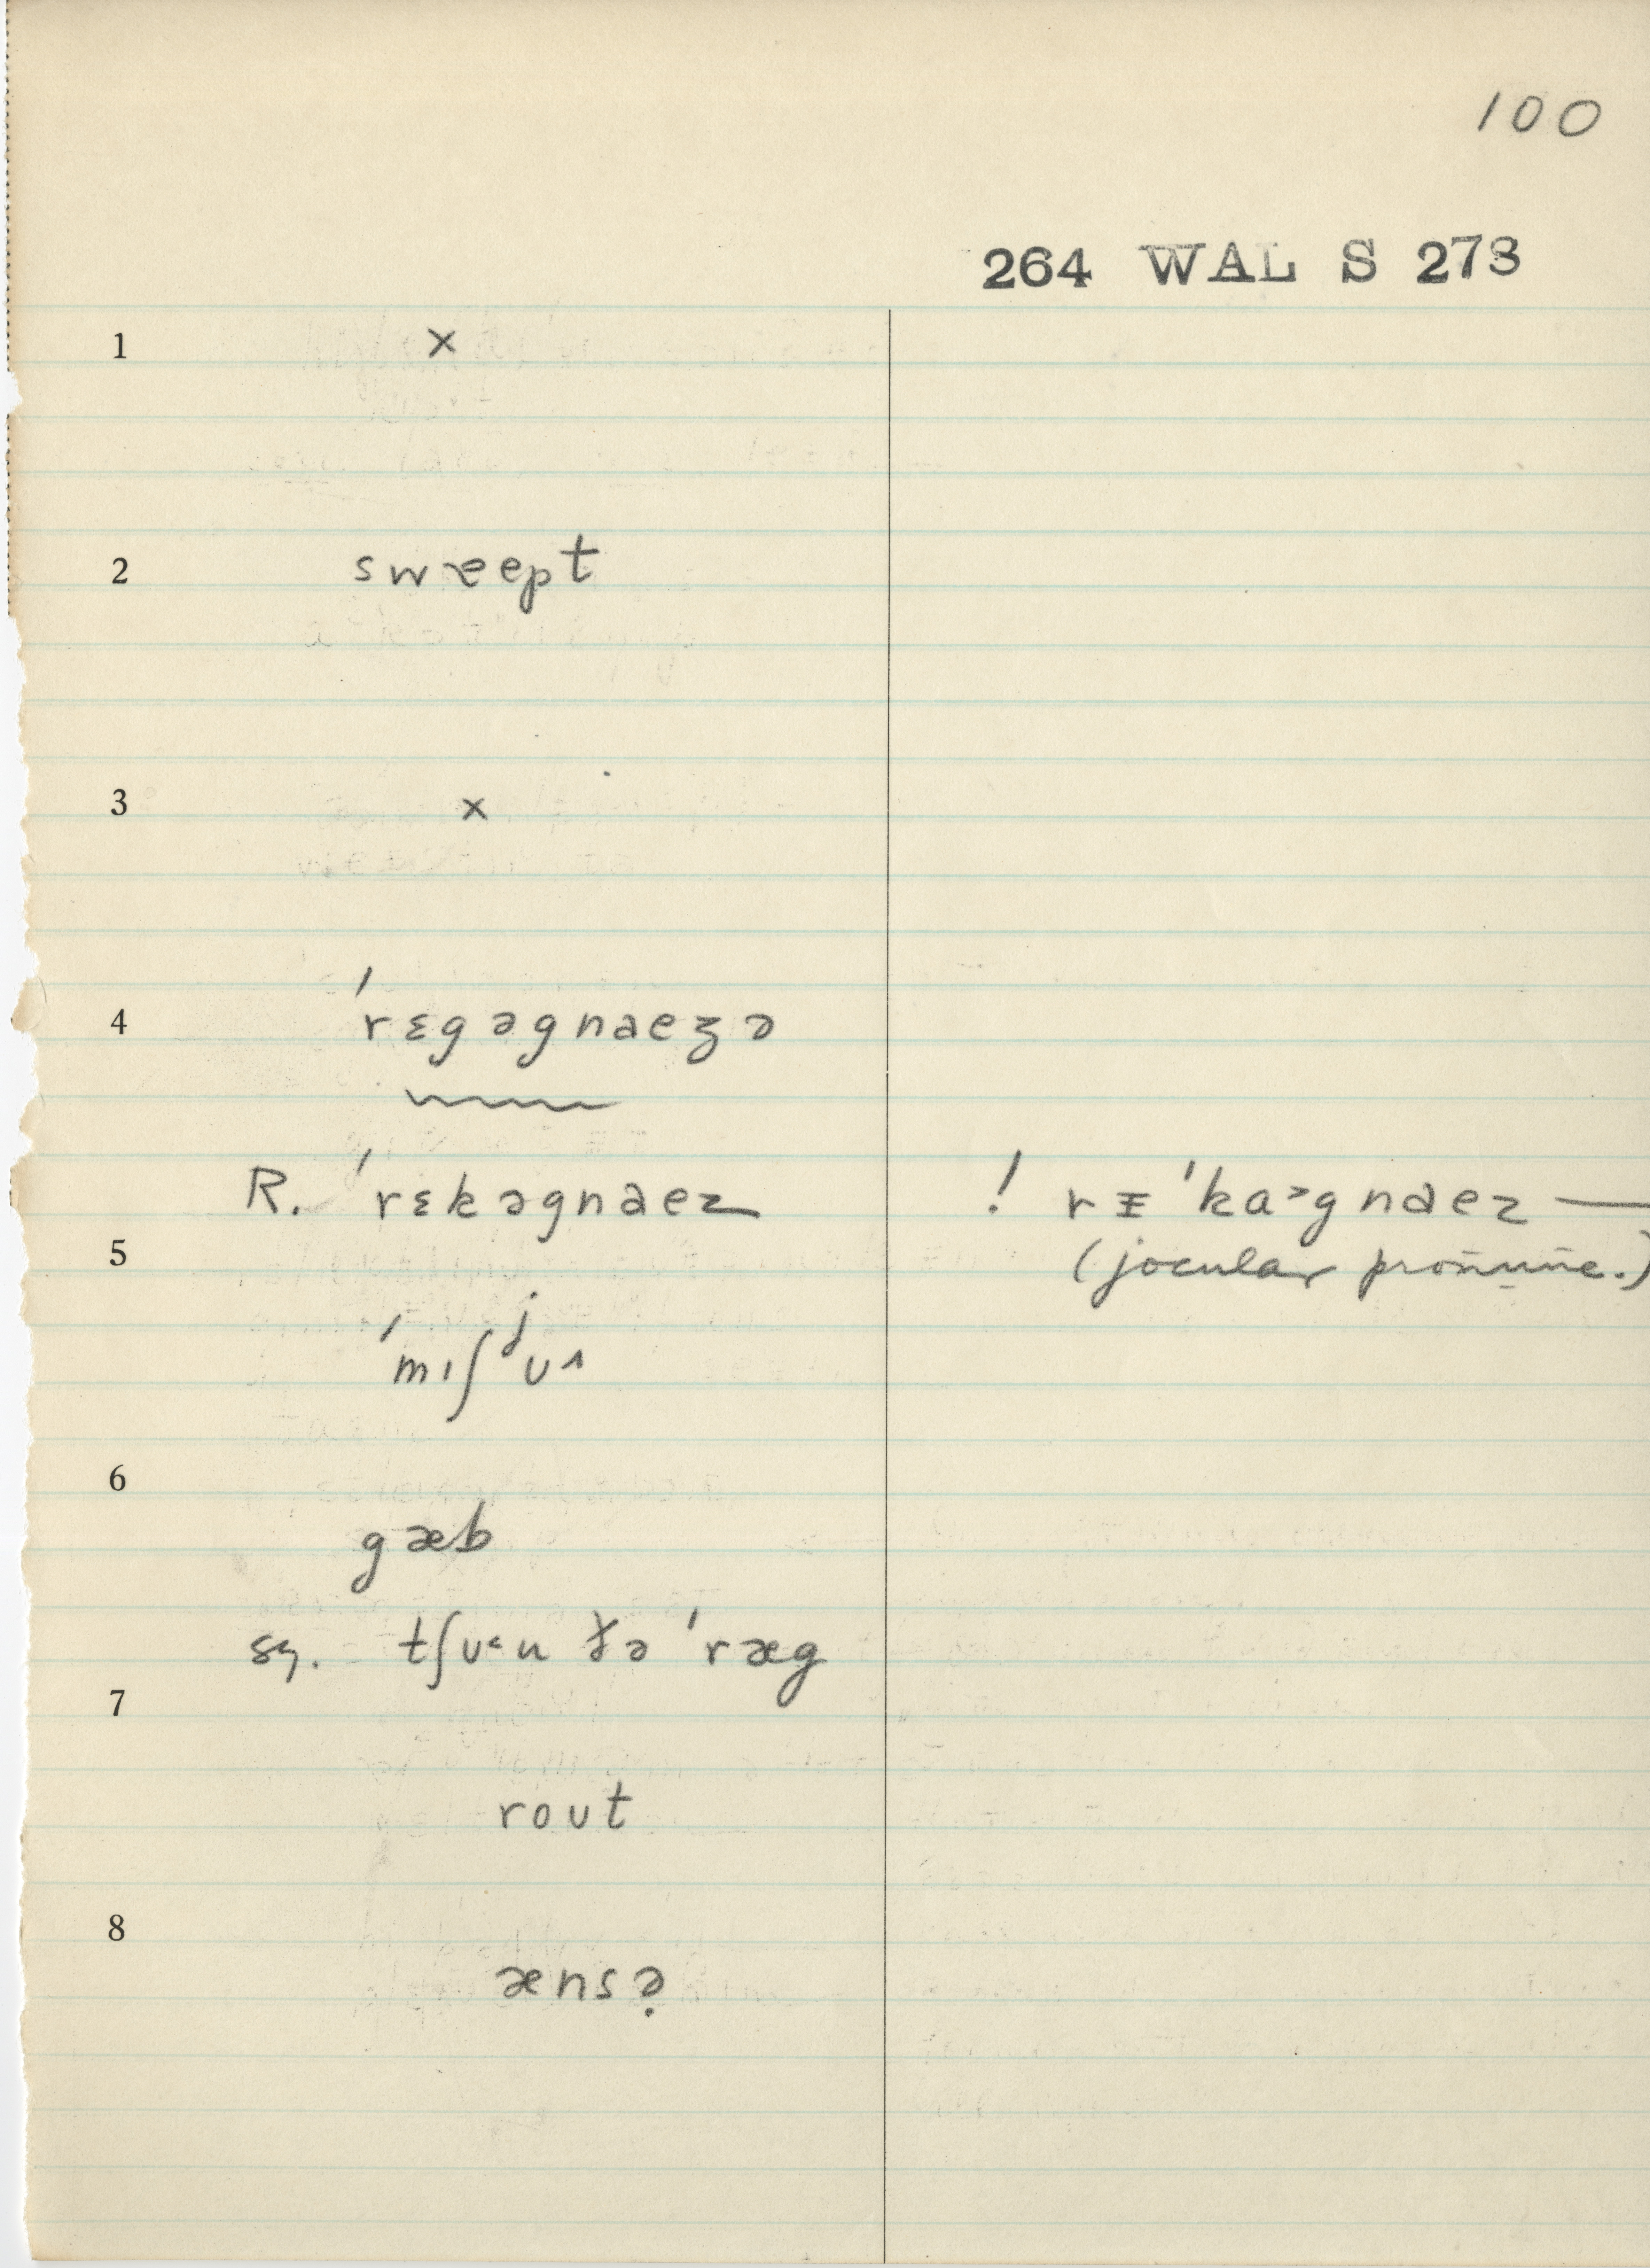 100
264 WAL S 273
1 ×
2 swɛept
3 ×
4 ˈrɛgəgnaeʒə
R. ˈrɛkəgnaez ! rᵻˈka˃gnaez —
5 (jocular pronunc.)
ˈmɪʃʲʊ˄
6
gæb
sg. tʃʊ˂u ðə ˈræg
7
roʊt
8
ænsə̣